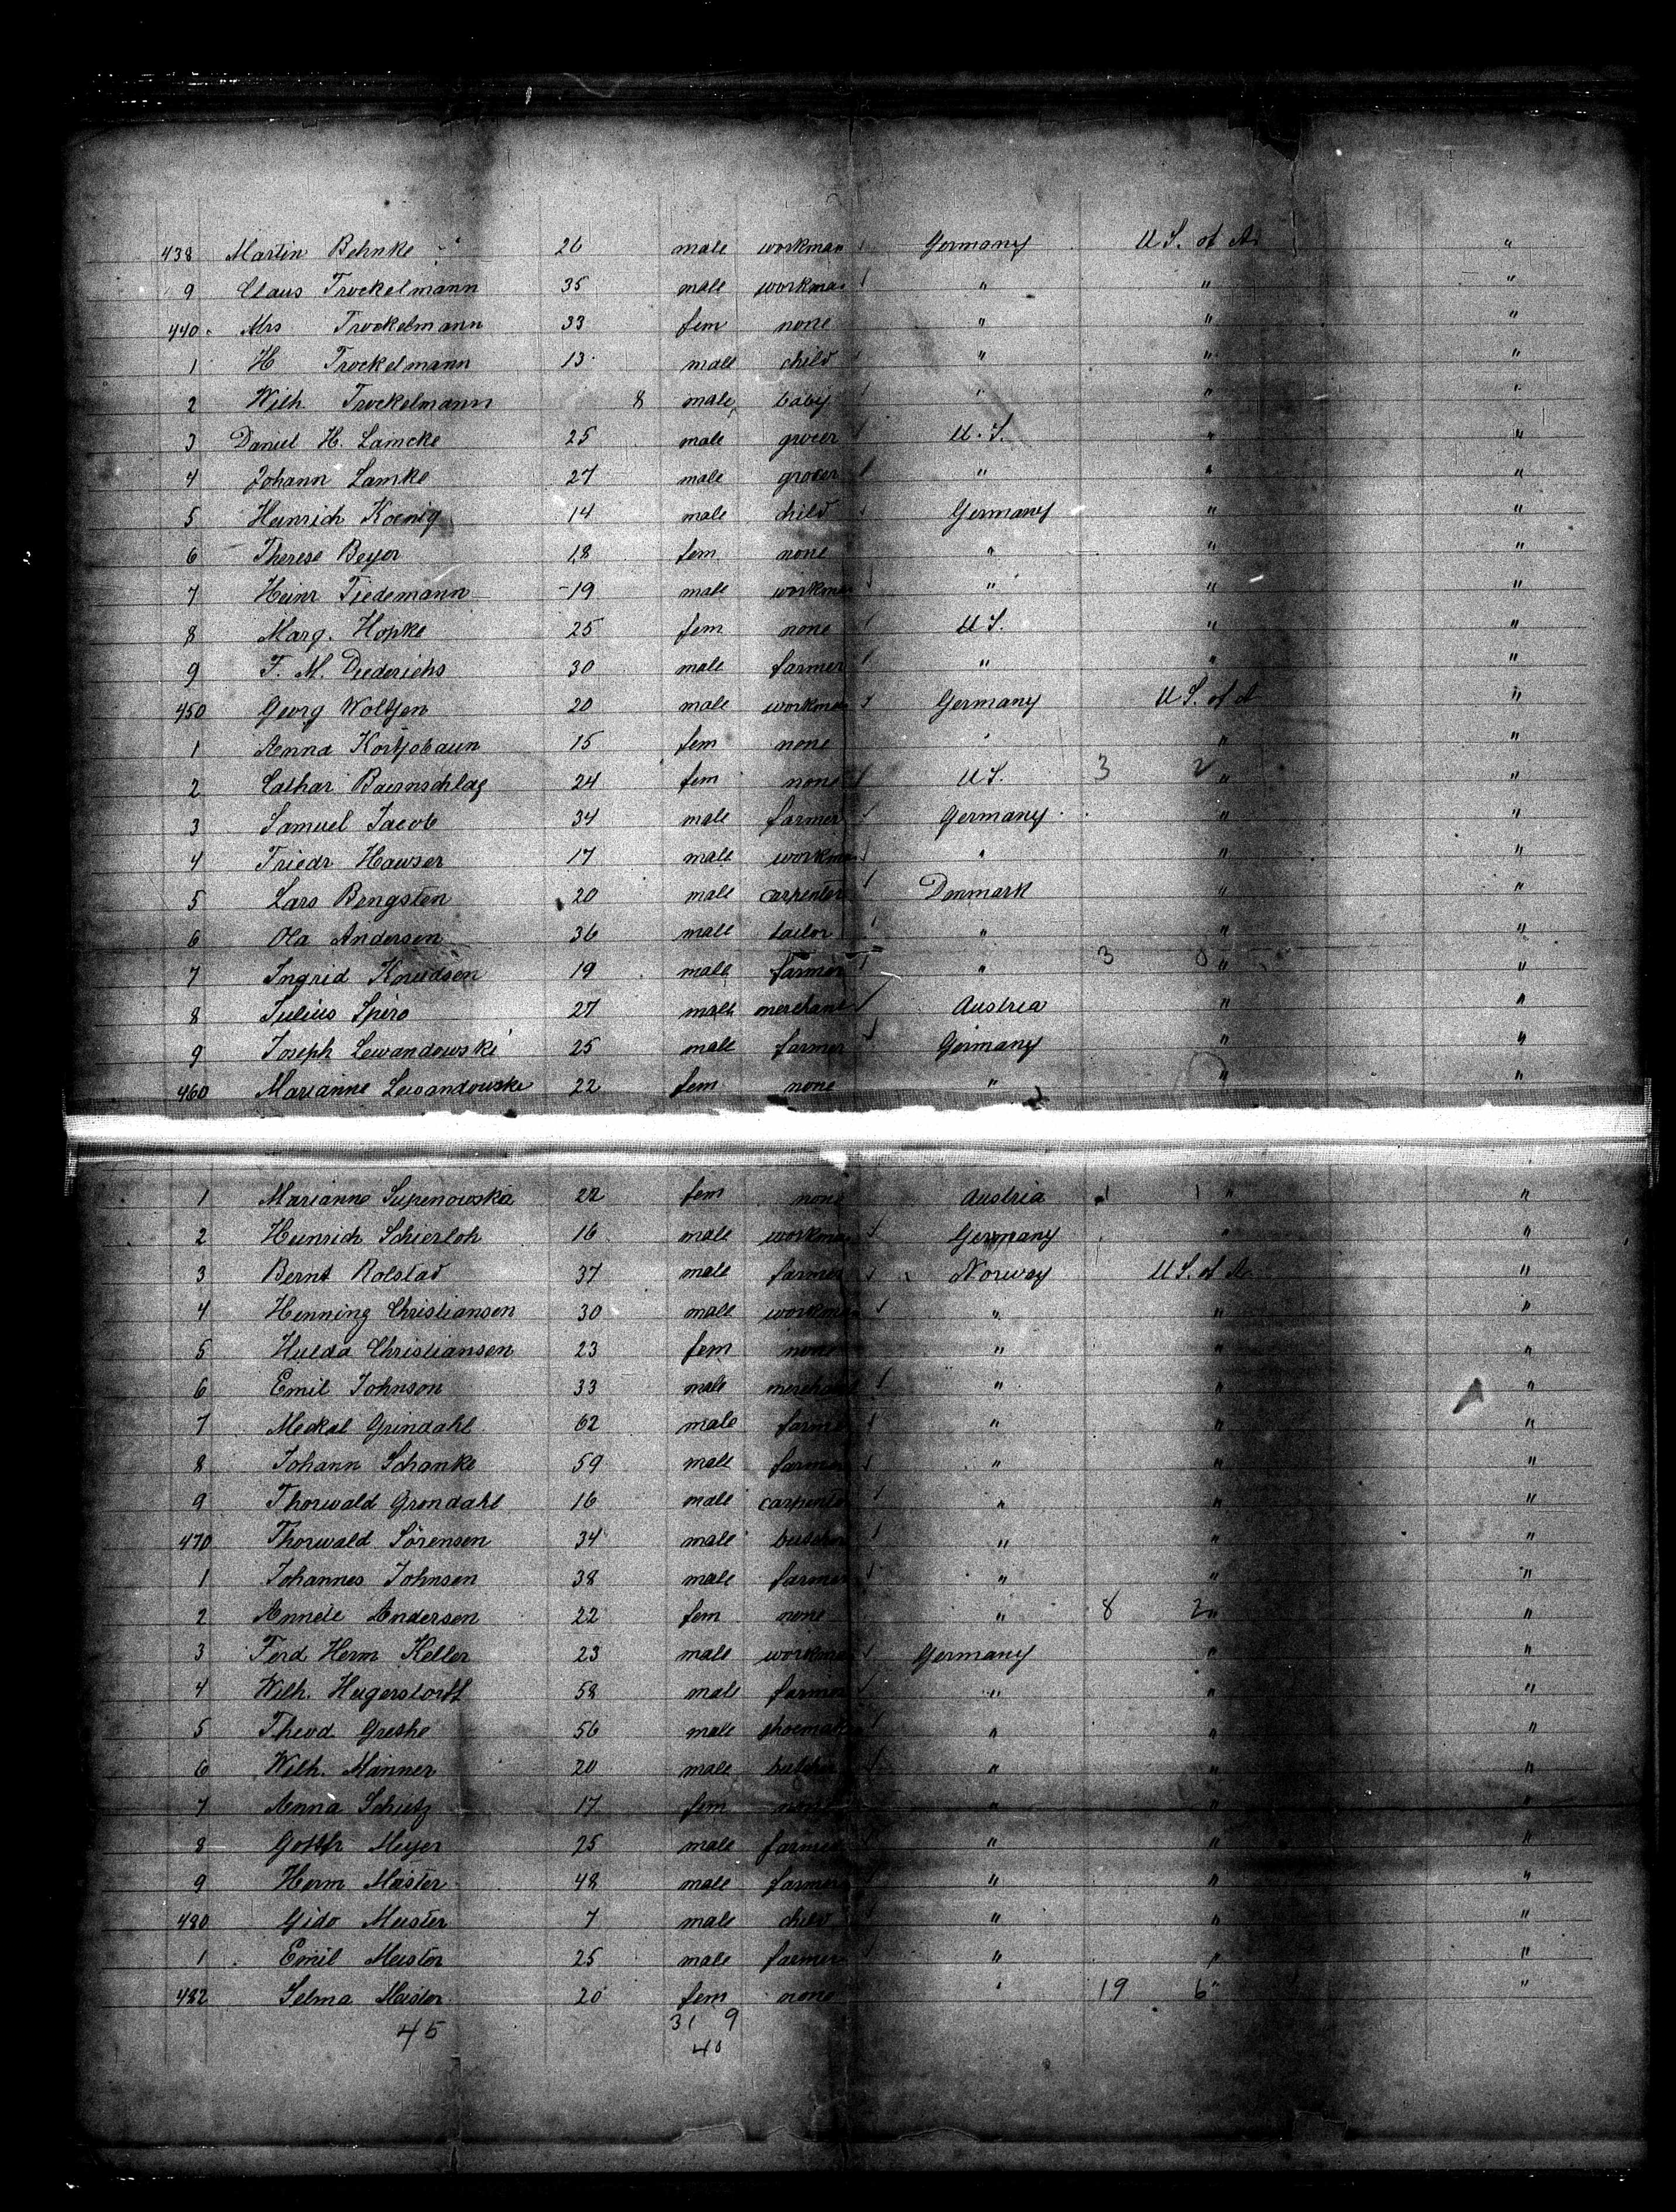 438 Martin Behnke 26 male workman Germany U S. of A. "
9 Claus Trockelmann 35 male workman " " "
440 Mrs Trockelmann 33 fem none " " "
1 H Trockelmann 13 male child " " "
2 Wilh. Trockelmann 8 male baby " " "
3 Daniel H. Lamcke 25 male grocer U.S. " "
4 Johann Lamke 27 male grocer " " "
5 Heinrich Koenig 14 male child Germany " "
6 Therese Beyer 18 fem none " " "
7 Heinr Tiedemann 19 male workman " " "
8 Marg. Hopke 25 fem none U S. " "
9 F. M. Diederichs 30 male farmer " " "
450 Georg Woltjen 20 male workman Germany U S. of A "
1 Anna 15 fem none " " "
2 Cathar Baernschlag 24 fem none U S. 3 2 " "
3 Samuel Jacob 34 male farmer Germany " "
4 Friedr Hauser 17 male workman " " "
5 Lars Bengsten 20 male carpenter Denmark " "
6 Ola Andersen 36 male tailor " " "
7 Ingrid Knudsen 19 male farmer " 3 0 " "
8 Julius Spiro 27 male merchant Austria " "
9 Joseph Lewandowski 25 male farmer Germany " "
460 Marianne Lewandowske 22 fem none " " "
1 Marianne Supenowska 22 fem none Austria 1 1 " "
2 Heinrich Schierloh 16 male workman Germany " "
3 Bernt Rolstad 37 male farmer Norway U S. of A. "
4 Henning Christiansen 30 male workman " " "
5 Hulda Christiansen 23 fem none " " "
6 Emil Johnson 33 male merchant " " "
7 Meckal Grindahl 62 male farmer " " "
8 Johann Schanke 59 male farmer " " "
9 Thorwald Grondahl 16 male carpenter " " "
470 Thorwald Sörensen 34 male butcher " " "
1 Johannes Johnsen 38 male farmer " " "
2 Annele Andersen 22 fem none " 8 2 " "
3 Ferd Herm Keller 23 male workman Germany " "
4 Wilh. 58 male farmer " " "
5 Theod Greshe 56 male shoemaker " " "
6 Wilh. Männer 20 male butcher " " "
7 Anna Schietz 17 fem none " " "
8 Gotth Meyer 25 male farmer " " "
9 Herm Meister 48 male farmer " " "
480 Gido Meister 7 male child " " "
1 Emil Meister 25 male farmer " " "
482 Selma Meister 20 fem none " 19 6 " "
45 31 9
40